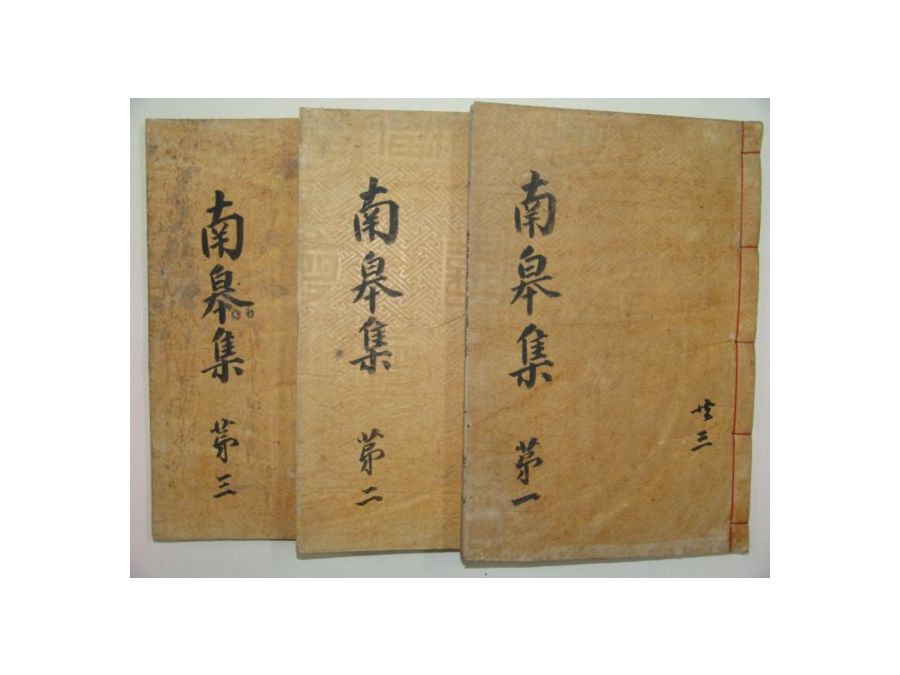 共三
南皐集 苐一
南皐集 苐二
南皐集 苐三